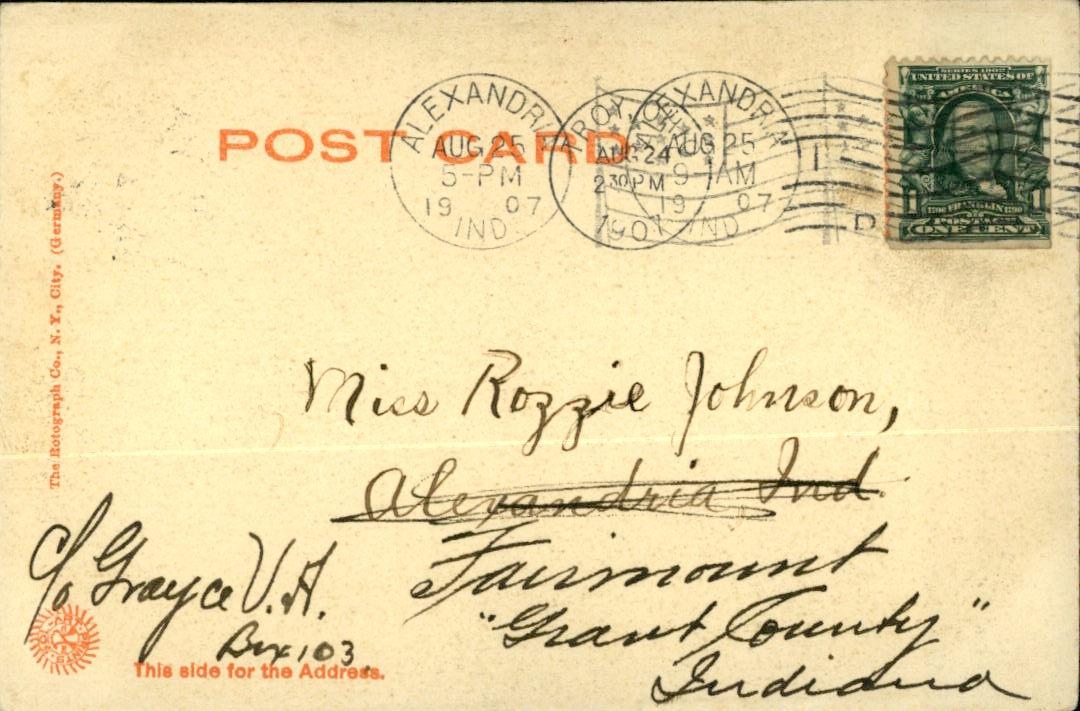 POST CARD
ALEXANDRIA
AUG 25
5-PM
19 07
IND
TROY, OHIO
AUG 24
2 30 PM
1907
ALEXANDRIA
AUG 25
9-AM
19 07
IND
SERIES 1902
UNITED STATES OF
AMERICA
1 FRANKLIN 1
ONE CENT
The Rotograph Co., N. Y., City. (Germany.)
Miss Rozzie Johnson,
Alexandria Ind.
Fairmount
"Grant County"
Indiana
c/o Grayce V. H.
Box 103
This side for the Address.